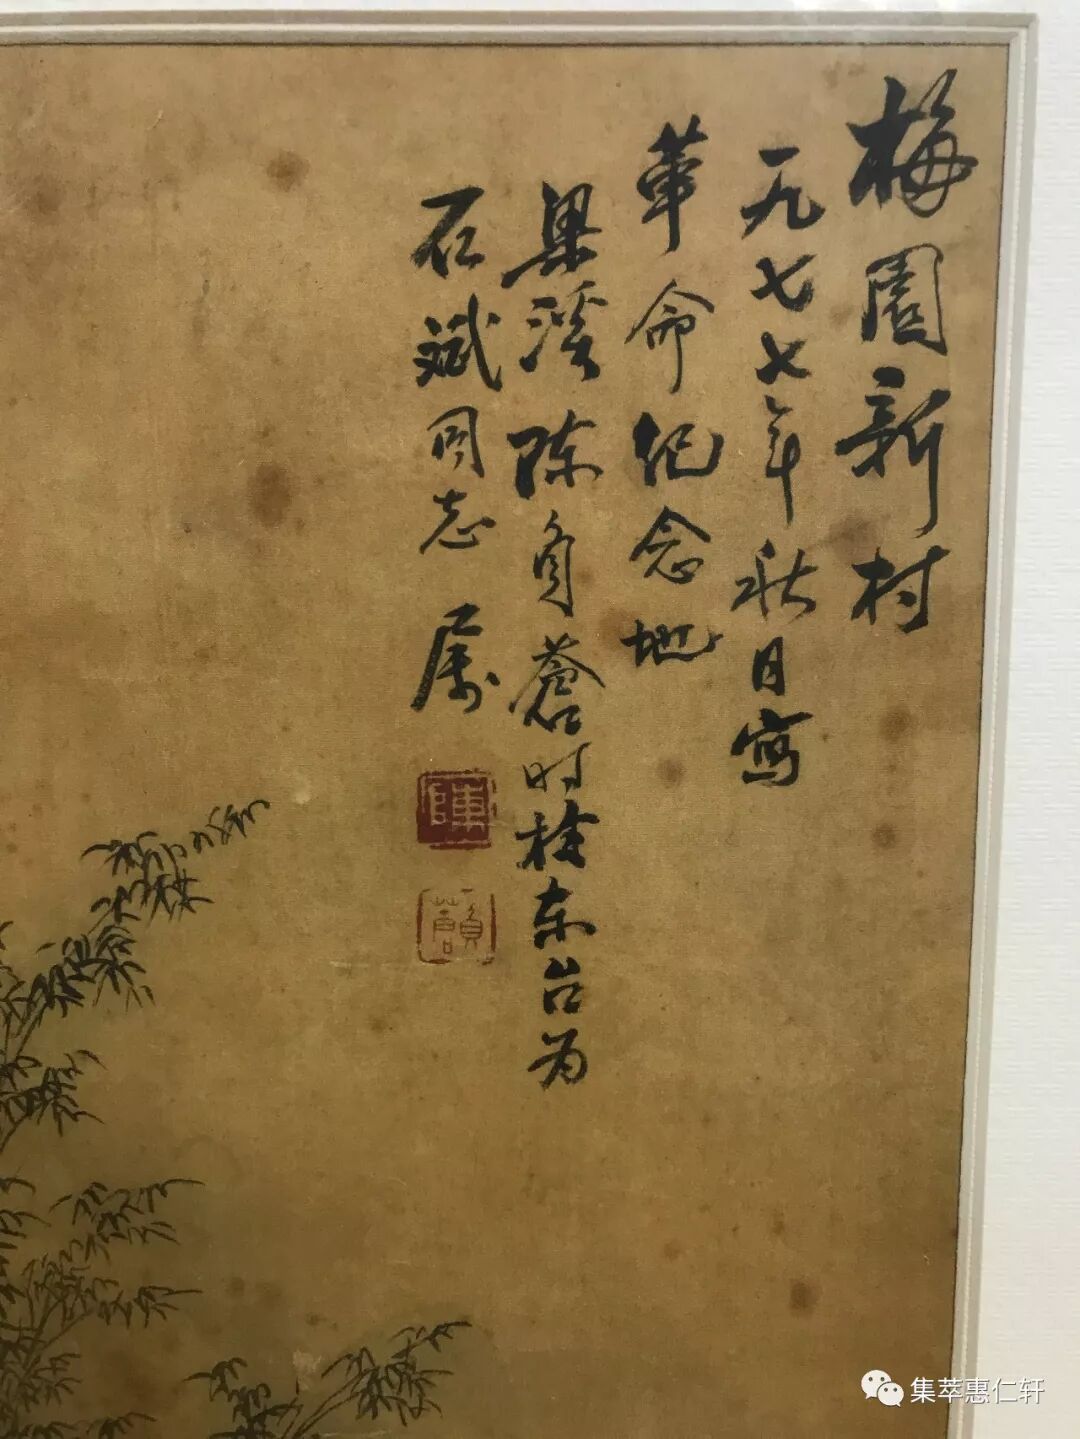 梅園新村
一九七七年秋日寫
革命纪念地
梁溪陈负蒼时接东台为
石斌同志属
陳
負蒼
集萃惠仁轩